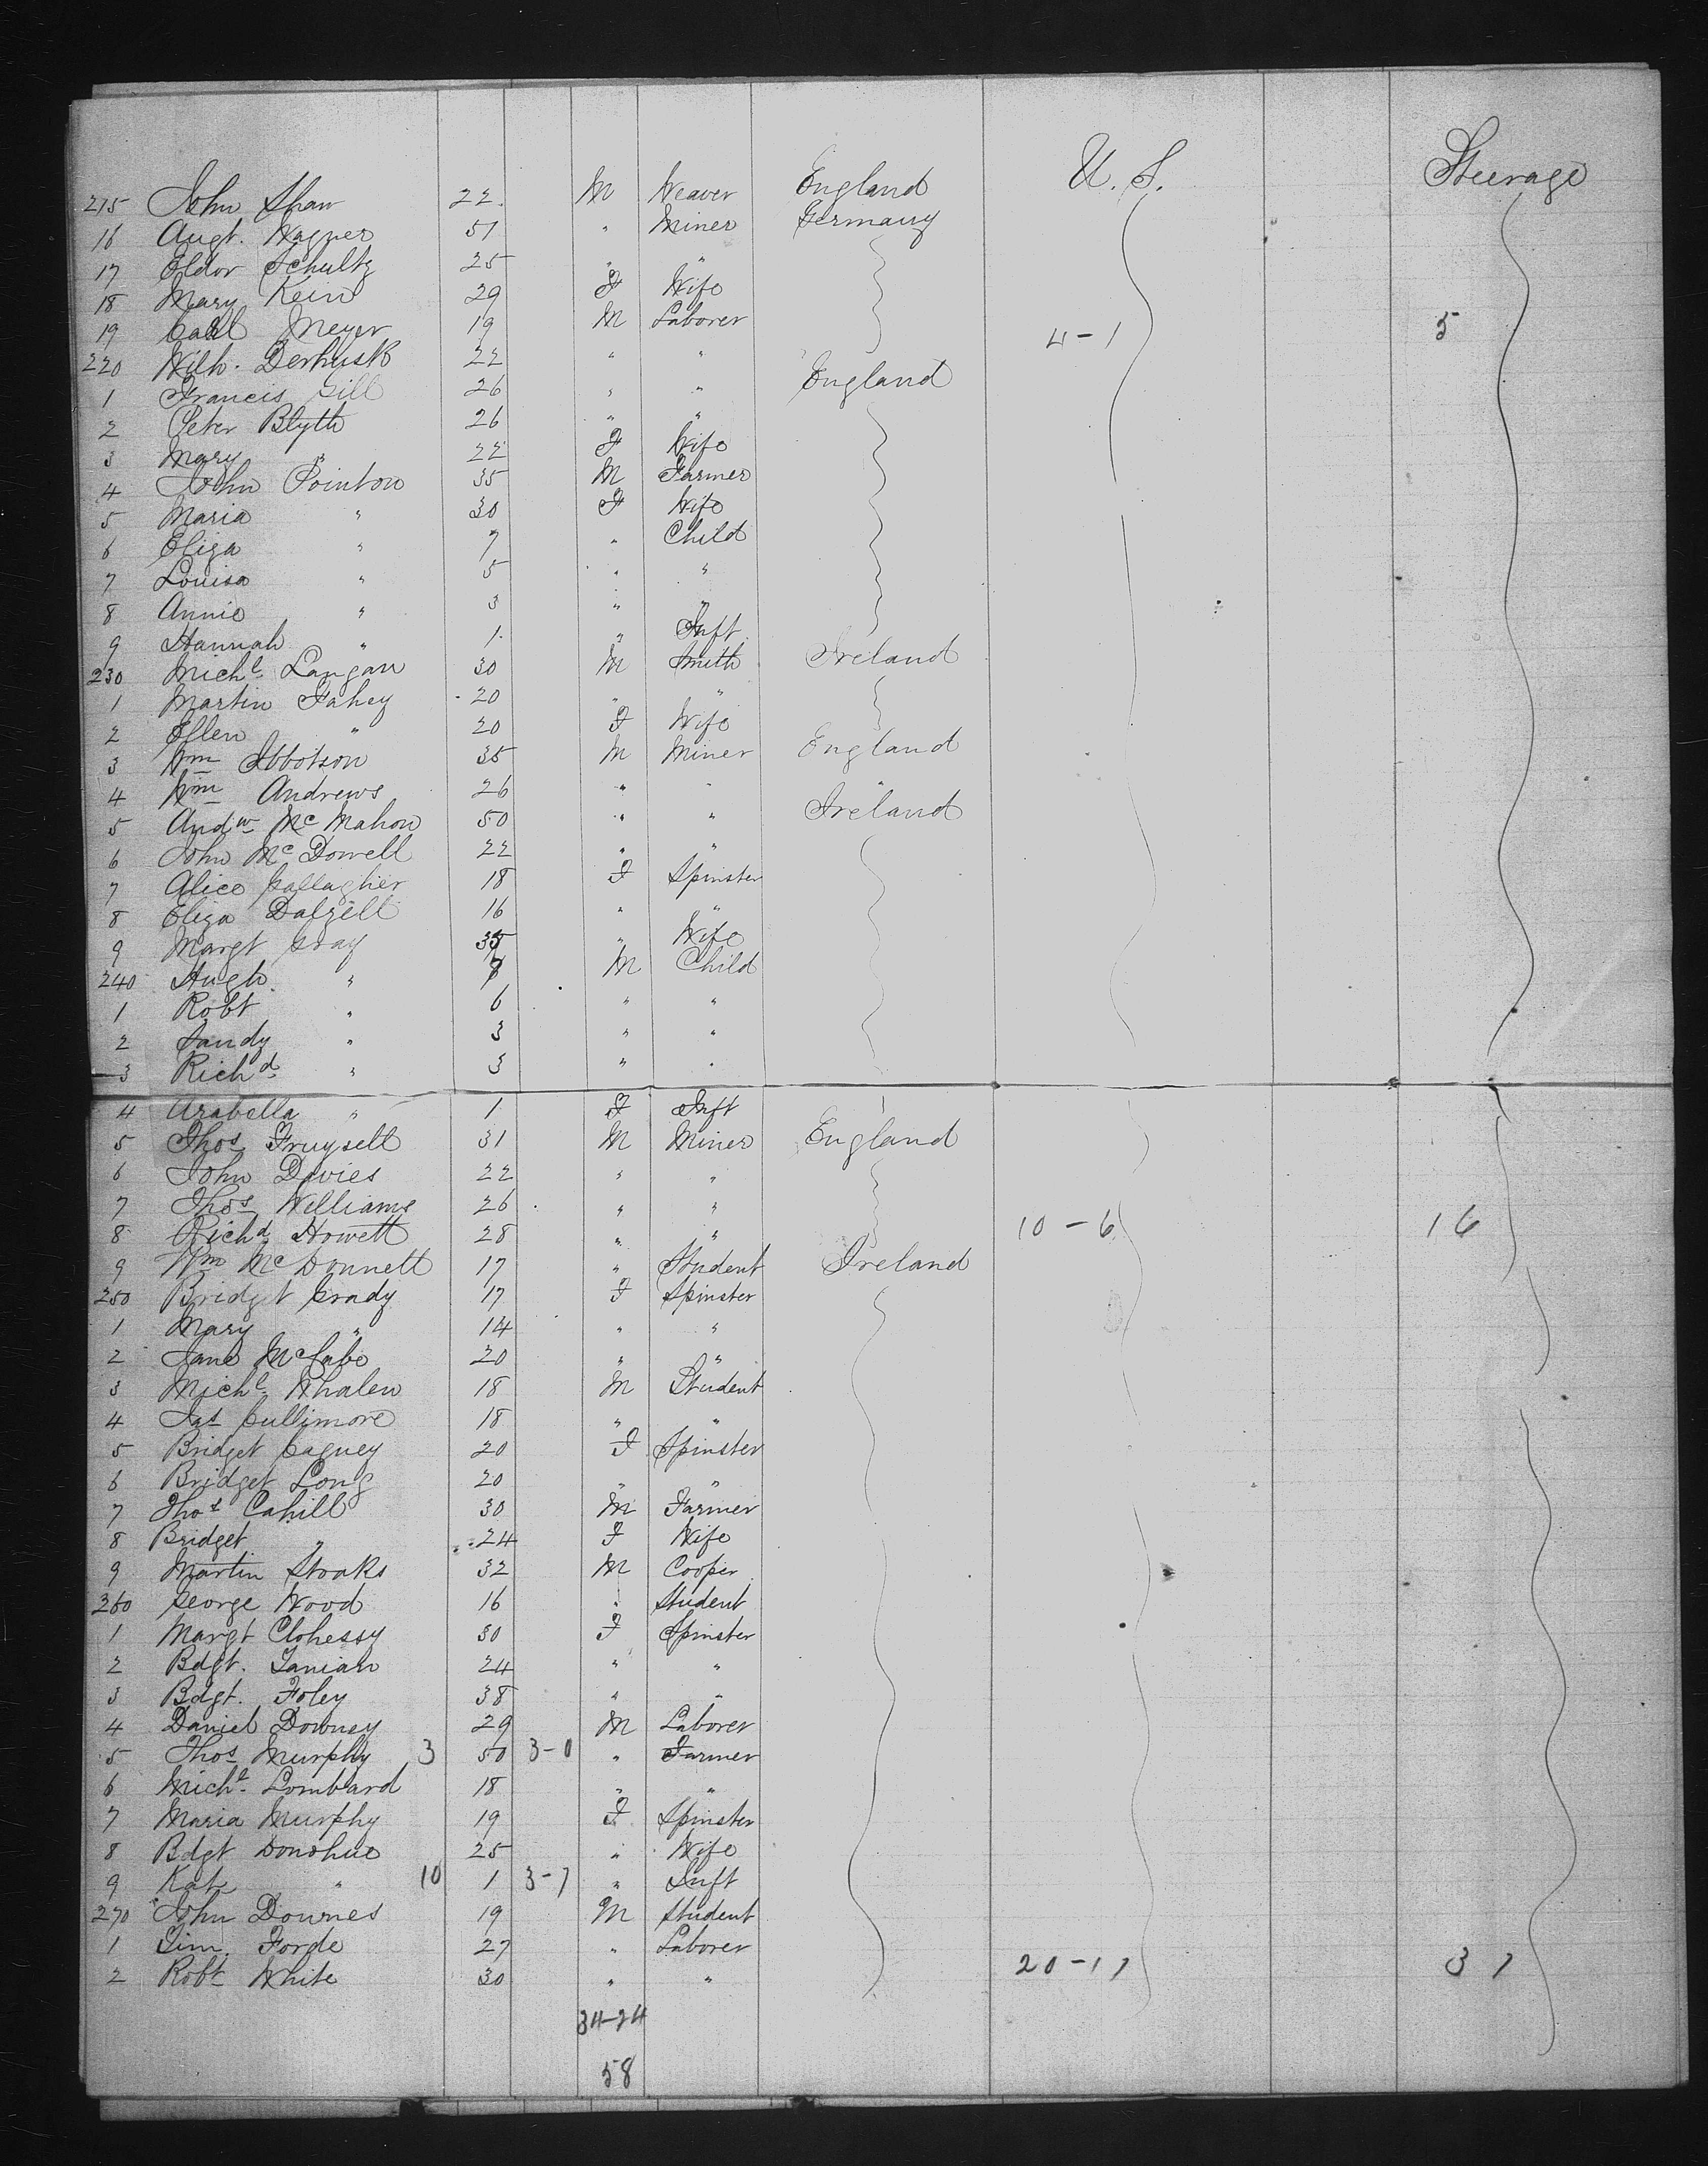 U. S. Steerage
215 John Shaw 22 M Weaver England
16 Augt. Wagner 51 " Miner Germany
17 Eldor Schultz 25 " "
18 Mary Kein 29 F Wife
19 Carl Meyer 19 M Laborer 4-1 5
220 Wilh. 22 " "
1 Francis Gill 26 " " England
2 Peter Blyth 26 " "
3 Mary " 22 F Wife
4 John Pointon 35 M Farmer
5 Maria " 30 F Wife
6 Eliza " 7 " Child
7 Louisa " 5 " "
8 Annie " 3 " "
9 Hannah " 1 " Inft.
230 Michl. Langan 30 M Smith Ireland
1 Martin Fahey 20 " "
2 Ellen " 20 F Wife
3 Wm Ibbotson 35 M Miner England
4 Wm Andrews 26 " "
5 Andw Mc Mahon 50 " " Ireland
6 John Mc Dowell 22 " "
7 Alice Gallagher 18 F Spinster
8 Eliza Dalzell 16 " "
9 Margt Gray 35 " Wife
240 Hugh " 7 M Child
1 Robt " 6 " "
2 Sandy " 3 " "
3 Richd " 3 " "
4 Arabella " 1 F Inft
5 Thos 31 M Miner England
6 John Davies 22 " "
7 Thos Williams 26 " "
8 Richd Howett 28 " " 10-6 16
9 Wm McDonnell 17 " Student Ireland
250 Bridget Grady 17 F Spinster
1 Mary " 14 " "
2 Jane McCabe 20 " "
3 Michl Whalen 18 M Student
4 Jas Cullimore 18 " "
5 Bridget Cagney 20 F Spinster
6 Bridget Long 20 " "
7 Thos Cahill 30 M Farmer
8 Bridget " 24 F Wife
9 Martin Stoaks 32 M Cooper
260 George Wood 16 " Student
1 Margt Clohessy 30 F Spinster
2 Bdgt. Lanian 24 " "
3 Bdgt. Foley 38 " "
4 Daniel Downey 29 M Laborer
5 Thos Murphy 3 50 3-0 " Farmer
6 Michl Lombard 18 " "
7 Maria Murphy 19 F Spinster
8 Bdgt Donohue 25 " Wife
9 Kate " 10 1 3-7 " Inft
270 John Downes 19 M Student
1 Tim. Forde 27 " Laborer
2 Robt White 30 " " 20-17 37
34-24
58